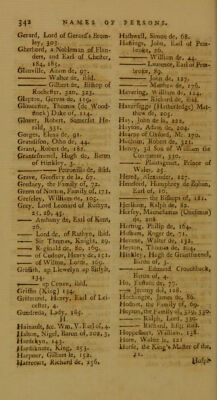 342 NAMES OF PERSONS.
Gerard, Lord of Gerard's Bromley, 305
Gherbord, a Nobleman of Flanders, and Earl of Chester, 184, 185.
Glanville, Adam de, 97.
—— Walter de, ibid.
—— Gilbert de, Bishop of Rochester, 320, 323.
Glapton, Gervas de, 119.
Gloucester, Thomas (de Woodstock) Duke of, 114.
Glover, Robert, Somerset Herald, 331.
Gorges, Elena de, 91.
Grandison, Otho de, 44.
Grant, Robert de, 181.
Grantmesnil, Hugh de, Baron of Hinkley, 3.
—— Petronilla de, ibid.
Grave, Geoffery de la, 67.
Gredany, the Family of, 72.
Green of Norton, Family of, 171.
Grefeley, William de, 105.
Grey, Lord Leonard of Ruthyn, 25, 26, 45.
—— Anthony de, Earl of Kent, 26.
—— Lord de, of Ruthyn, ibid.
—— Sir Thomas, Knight, 29.
—— Reginald de, 80, 169.
—— of Codnor, Henry de, 151.
—— of Wilton, Lords, 169.
Griffith, ap Llewelyn ap
134.
—— ap Conan, ibid.
Griffin (King) 134.
Griesmenil, Henry, Earl of Leicester, 4.
Gundreda, Lady, 185.
H
Hainault, &c. Wm. V. Earl of, 4.
Halton, Nigel, Baron of, 202, 3.
Hardekyn, 143.
Hardiknute, King, 253.
Harpour, Gilbert le, 152.
Harrecourt, Richard de, 256.
Hathwell, Simon de, 68.
Hastings, John, Earl of Pembroke, 20.
—— William de, 44.
—— Laurence, Earl of Pembroke, 89.
—— Joan de, 127.
—— Matthew de, 176.
Havering, William de, 114.
—— Richard de, ibid.
Hauersigge (Hathersedge) Matthew de, 205.
Hay, John de la, 222.
Hayton, Adam de, 204.
Hearne of Oxford, Mr. 270.
Hedson, Robert de, 321.
Henry, 3d Son of William the Conqueror, 330.
—— Plantagenet, Prince of Wales, 23.
Henne, Alexander, 127.
Hereford, Humphrey de Bohun, Earl of, 16.
—— the Bishops of, 181.
Heriscun, Ralph de, 82.
Hersey,
Hertrig, Philip de, 164.
Hesham, Roger de, 71.
Heyron, Walter de, 152.
Heyton, Thomas de, 204.
Hinkley, Hugh de Grauntmesnil, Baron of, 3.
—— Edmund Crouchback, Baron of, 4.
Ho, Eustach de, 77.
—— Jeremy de, 118.
Hockinges, James de, 86.
Hodnet, the Family of, 69.
Hopton, the Family of, 339, 339.
—— Ralph, Lord, 339.
—— Richard, Esq; ibid.
Hoppeshort, William, 138.
Horn, Walter le, 121
Horse, the King's Master of the, 21.